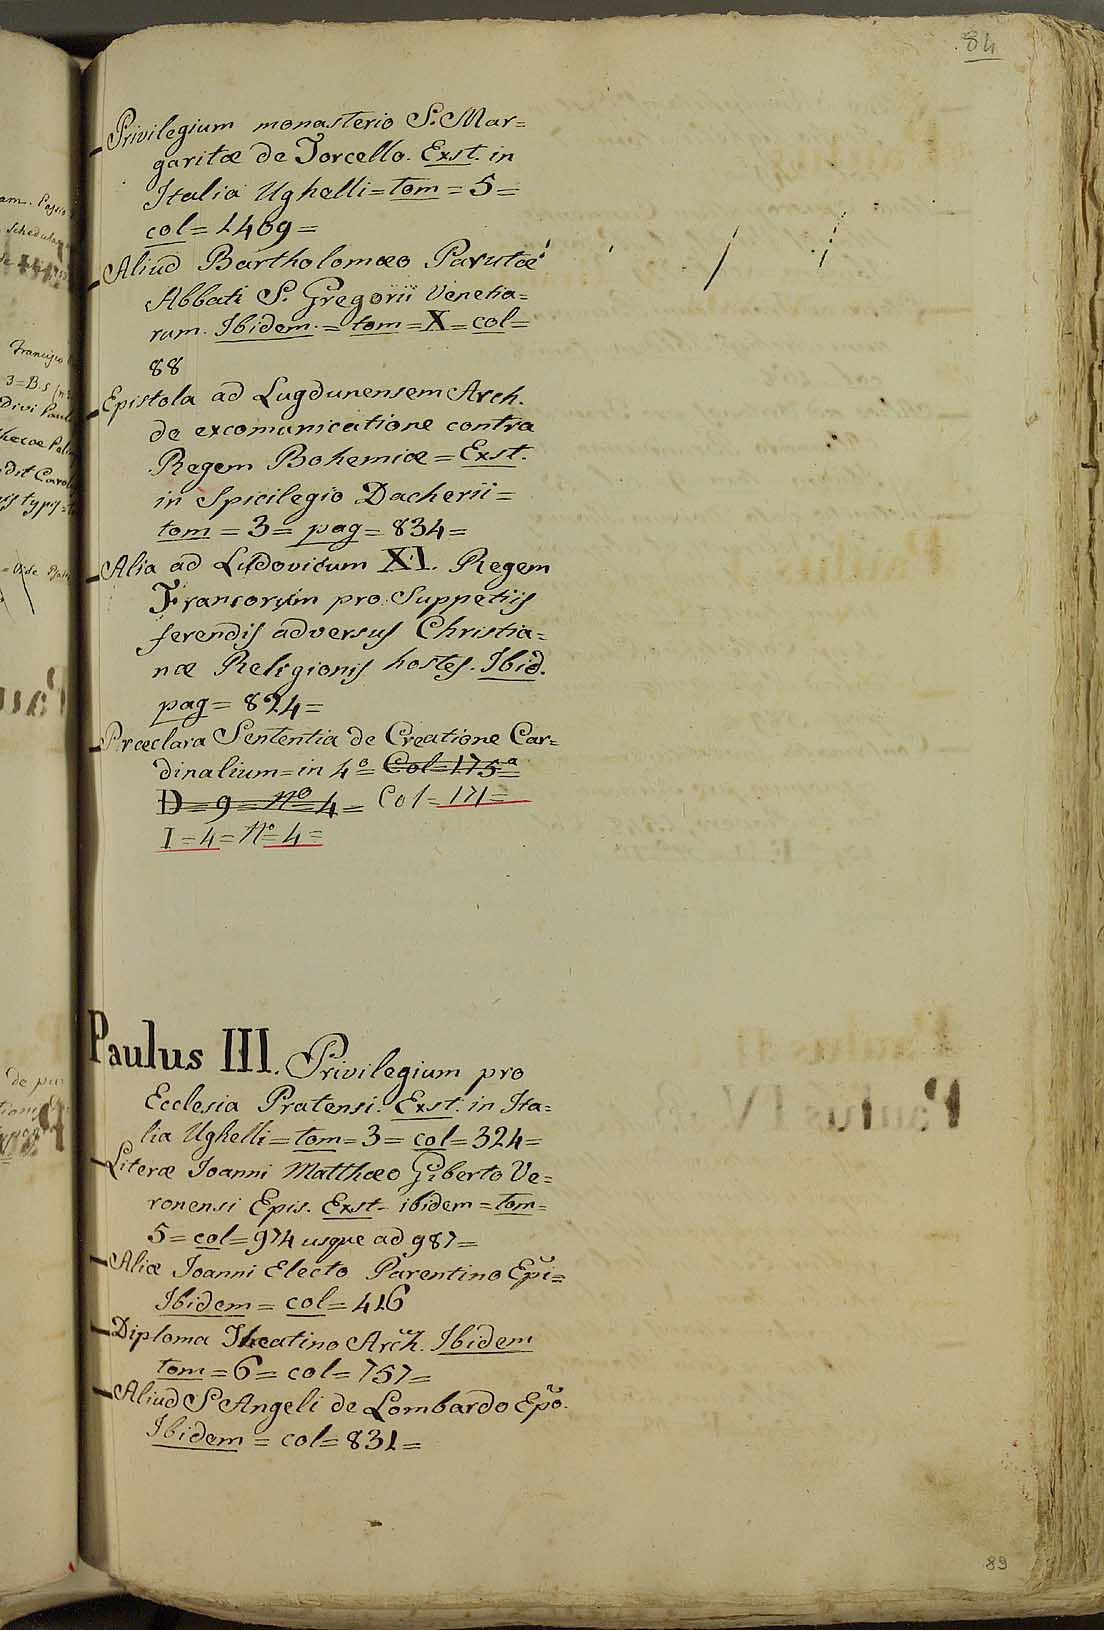 84
Privilegium monasterio S. Mar=
garitæ de Torcello. Exst. in
Italia Ughelli = tom = 5 =
col = 1409 =
Aliud Bartholomæo Parutæ
Abbati S. Gregorii Venetia=
rum. Ibidem. = tom = X = col =
88
Epistola ad Lugdunensem Arch.
de excomunicatione contra
Regem Bohemiæ = Exst.
in Spicilegio Dacherii =
tom = 3 = pag = 834 =
Alia ad Ludovicum XI. Regem
Francorum pro Suppetiis
ferendis adversus Christia=
næ Religionis hostes. Ibid.
pag = 824 =
Præclara Sententia de Creatione Car=
dinalium = in 4º = Col = 175ª
D = 9 = Nº 4 = Col = 171 =
I = 4 = Nº = 4 =
Paulus III. Privilegium pro
Ecclesia Pratensi. Exst. in Ita=
lia Ughelli = tom = 3 = col = 324 =
Literæ Joanni Matthæo Giberto Ve=
ronensi Epis. Exst. ibidem = tom =
5 = col = 974 usque ad 987 =
Aliæ Joanni Electo Parentino Epi =
Ibidem = col = 416
Diploma Theatino Arch. Ibidem
tom = 6 = col = 757 =
Aliud S. Angeli de Lombardo Epo.
Ibidem = col = 831 =
89